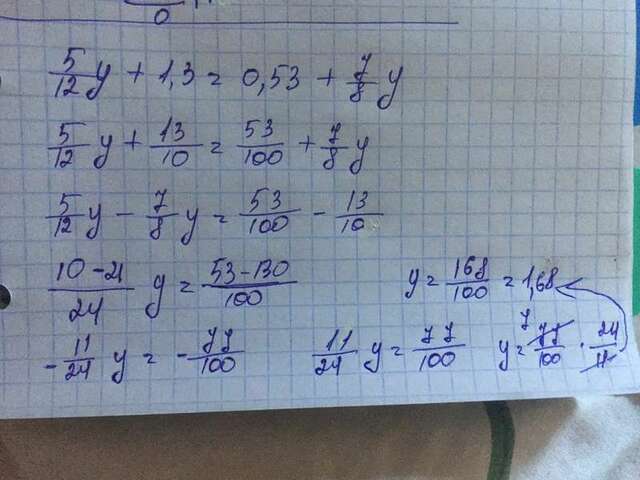 5/12 y + 1,3 = 0,53 + 7/8 y
5/12 y + 13/10 = 53/100 + 7/8 y
5/12 y - 7/8 y = 53/100 - 13/10
10-21/24 y = 53-130/100
y = 168/100 = 1,68
- 11/24 y = - 77/100
11/24 y = 77/100
y = 77/100 · 24/11
7